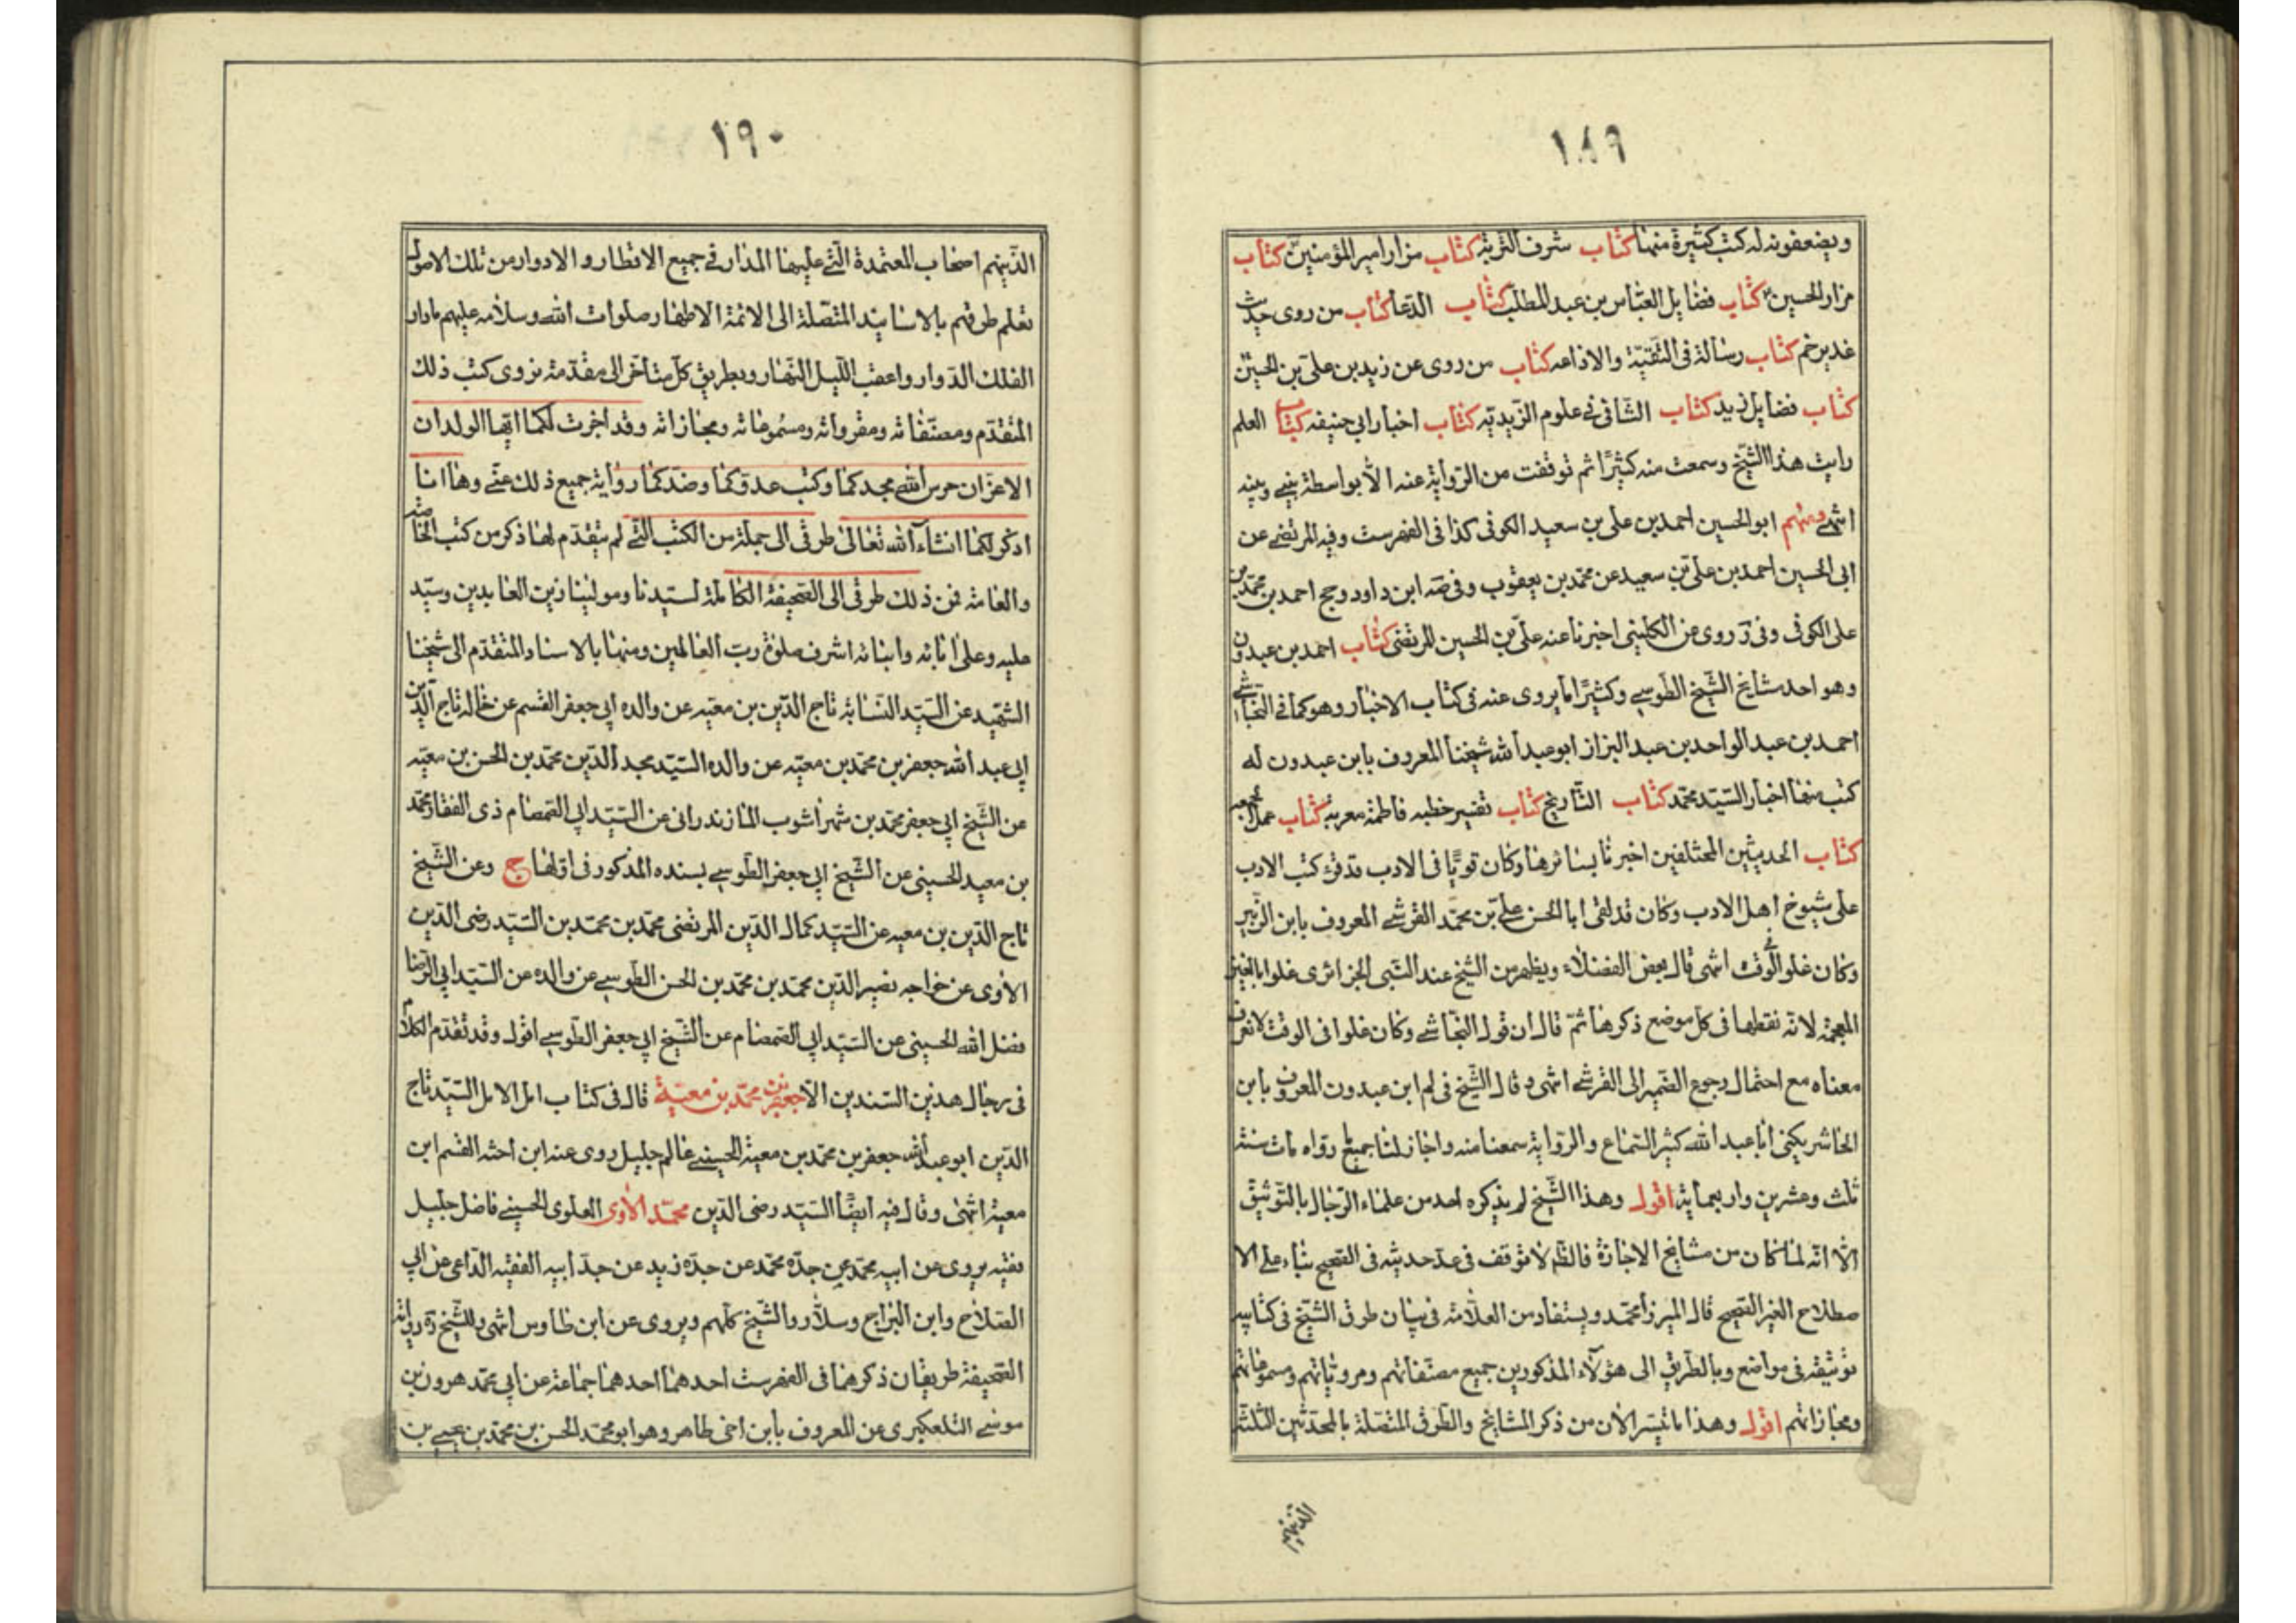 ١٨٩
ويضعفونه له كتب كثيرة منها كتاب شرف التربة كتاب مزار امير المؤمنين كتاب
مزار الحسين كتاب فضايل العباس بن عبد المطلب كتاب الدعا كتاب من روى حديث
غدير خم كتاب رسالة فى التقية والاذاعه كتاب من روى عن زيد بن على بن الحسين
كتاب فضايل زيد كتاب الشافى فى علوم الزيدية كتاب اخبار ابى حنيفه كتاب العلم
رايت هذا الشيخ وسمعت منه كثيرًا ثم توقفت من الرواية عنه الا بواسطة بينى وبينه
انتهى ومنهم ابو الحسين احمد بن على بن سعيد الكوفى كذا فى الفهرست وفيه المرتضى عن
ابى الحسين احمد بن على بن سعيد عن محمد بن يعقوب وفى ابن داود وجح احمد بن محمد بن
على الكوفى وفى روى عن الكلينى اخبرنا عنه على بن الحسين المرتضى كتاب احمد بن عبدون
وهو احد مشايخ الشيخ الطوسى وكثيرًا ما يروى عنه فى كتاب الاخبار وهو كما فى النجاشى
احمد بن عبد الواحد بن عبد البزاز ابو عبد الله شيخنا المعروف بابن عبدون له
كتب منها اخبار السيد محمد كتاب التاريخ كتاب تفسير خطبه فاطمة معربة كتاب عمل الجمعه
كتاب الحديثين المختلفين اخبرنا بسائرها وكان قويًا فى الادب قد قرء كتب الادب
على شيوخ اهل الادب وكان قد لقى ابا الحسن على بن محمد القرشى المعروف بابن الزبير
وكان غلو الوقت انتهى قال بعض الفضلاء ويظهر من الشيخ عبد النبى الجزائرى غلوا بالغين
المعجمة لانه نقطها فى كل موضع ذكرها ثم قال ان قول النجاشى وكان غلوا فى الوقت لا نعرف
معناه مع احتمال رجوع الضمير الى القرشى انتهى وقال الشيخ فى لم ابن عبدون المعروف بابن
الحاشر يكنى ابا عبد الله كثير السماع والرواية سمعنا منه واجاز لنا جميع ما رواه مات سنة
ثلث وعشرين واربعمائة اقول وهذا الشيخ لم يذكره احد من علماء الرجال بالتوثيق
الا انه لما كان من مشايخ الاجازة فالظم لا توقف فى عد حديثه فى الصحيح بناء على الا
صطلاح الغير الصحيح قال الميرزا محمد ويستفاد من العلامة فى بيان طرق الشيخ فى كتابيه
توثيقه فى مواضع وبالطريق الى هؤلاء المذكورين جميع مصنفاتهم ومروياتهم ومسموعاتهم
ومجازاتهم اقول وهذا ما تيسر الان من ذكر المشايخ والطرق المتصلة بالمحدثين الثلثة
١٩٠
الذينهم اصحاب المعتمدة التى عليها المدار فى جميع الاقطار والادوار من تلك الاصول
تعلم طرقهم بالاسانيد المتصلة الى الائمة الاطهار صلوات الله وسلامه عليهم مادار
الفلك الدوار واعقب الليل النهار وبطريق كل متاخر الى مقدمة نروى كتب ذلك
المتقدم ومصنفاته ومقرواته ومسموعاته ومجازاته وقد اجزت لكما ايها الولدان
الاعزان حرس الله مجدكما وكتب عدوكما وضدكما رواية جميع ذلك عنى وها انا
اذكر لكما انشاء الله تعالى طرقى الى جملة من الكتب التى لم يتقدم لها ذكر من كتب الخاصة
والعامة فمن ذلك طرقى الى الصحيفة الكاملة لسيدنا ومولينا زين العابدين وسيد
عليه وعلى ابائه وابنائه اشرف صلوة رب العالمين ومنها بالاسناد المتقدم الى شيخنا
الشهيد عن السيد النسابة تاج الدين بن معيه عن والده ابى جعفر القسم عن خاله تاج الدين
ابى عبد الله جعفر بن محمد بن معيه عن والده السيد مجد الدين محمد بن الحسن بن معيه
عن الشيخ ابى جعفر محمد بن شهراشوب المازندرانى عن السيد ابى الصمصام ذى الفقار محمد
بن معيد الحسينى عن الشيخ ابى جعفر الطوسى بسنده المذكور فى اولها ج وعن الشيخ
تاج الدين بن معيه عن السيد كمال الدين المرتضى محمد بن محمد بن السيد رضى الدين
الاوى عن خواجه نصير الدين محمد بن محمد بن الحسن الطوسى عن والده عن السيد ابى الرضا
فضل الله الحسينى عن السيد ابى الصمصام عن الشيخ ابى جعفر الطوسى اقول وقد تقدم الكلام
فى رجال هذين السندين الا جعفر بن محمد بن معية قال فى كتاب امل الامل السيد تاج
الدين ابو عبد الله جعفر بن محمد بن معية الحسينى عالم جليل روى عنه ابن اخته القسم ابن
معية انتهى وقال فيه ايضًا السيد رضى الدين محمد الاوى العلوى الحسينى فاضل جليل
فقيه يروى عن ابيه محمد عن جده محمد عن جده زيد عن جد ابيه الفقيه الداعى عن ابى
الصلاح وابن البراج وسلار والشيخ كلهم ويروى عن ابن طاوس انتهى وللشيخ ره رواية
الصحيفة طريقان ذكرهما فى الفهرست احدهما احدهما جماعة عن ابى محمد هرون بن
موسى التلعكبرى عن المعروف بابن اخى طاهر وهو ابو محمد الحسن بن محمد بن يحيى بن